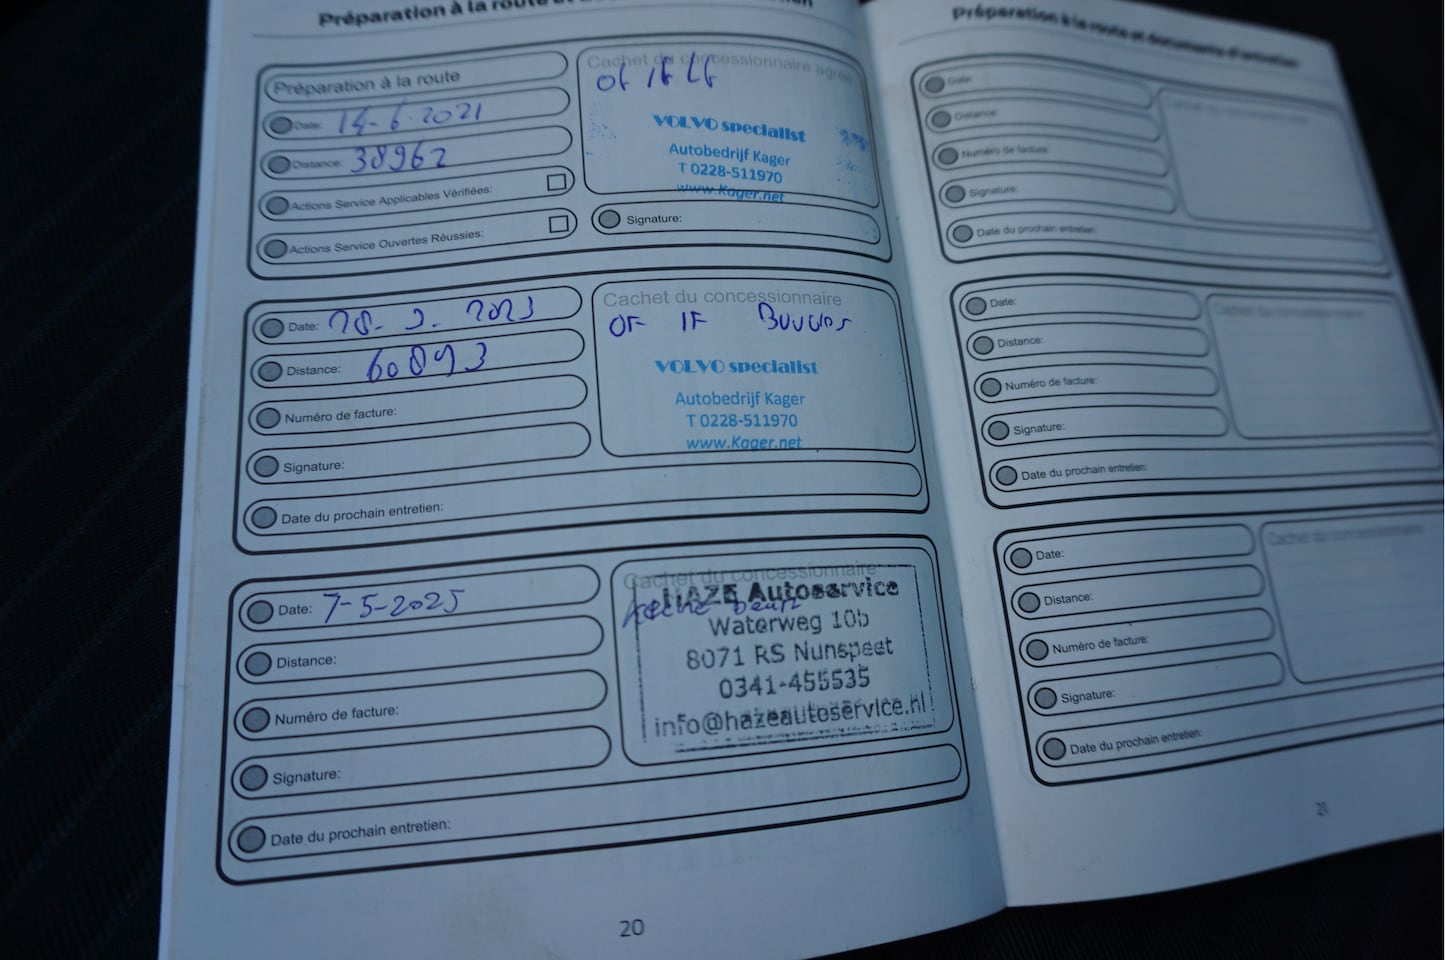 Préparation à la route
Préparation à la route
Date: 14-6-2021
Distance: 38962
Actions Service Applicables Vérifiées:
Actions Service Ouvertes Réussies:
Cachet du concessionnaire agréé
VOLVO specialist
Autobedrijf Kager
T 0228-511970
www.Kager.net
Signature:
Date: 28-3-2023
Distance: 60893
Numéro de facture:
Signature:
Date du prochain entretien:
Cachet du concessionnaire
OF IF
VOLVO specialist
Autobedrijf Kager
T 0228-511970
www.Kager.net
Date: 7-5-2025
Distance:
Numéro de facture:
Signature:
Date du prochain entretien:
Cachet du concessionnaire
HAZE Autoservice
Waterweg 10b
8071 RS Nunspeet
0341-455535
info@hazeautoservice.nl
20
Préparation à la route et documents d'entretien
Date:
Distance:
Numéro de facture:
Signature:
Date du prochain entretien:
Date:
Distance:
Numéro de facture:
Signature:
Date du prochain entretien:
Cachet du concessionnaire
Date:
Distance:
Numéro de facture:
Signature:
Date du prochain entretien:
Cachet du concessionnaire
21